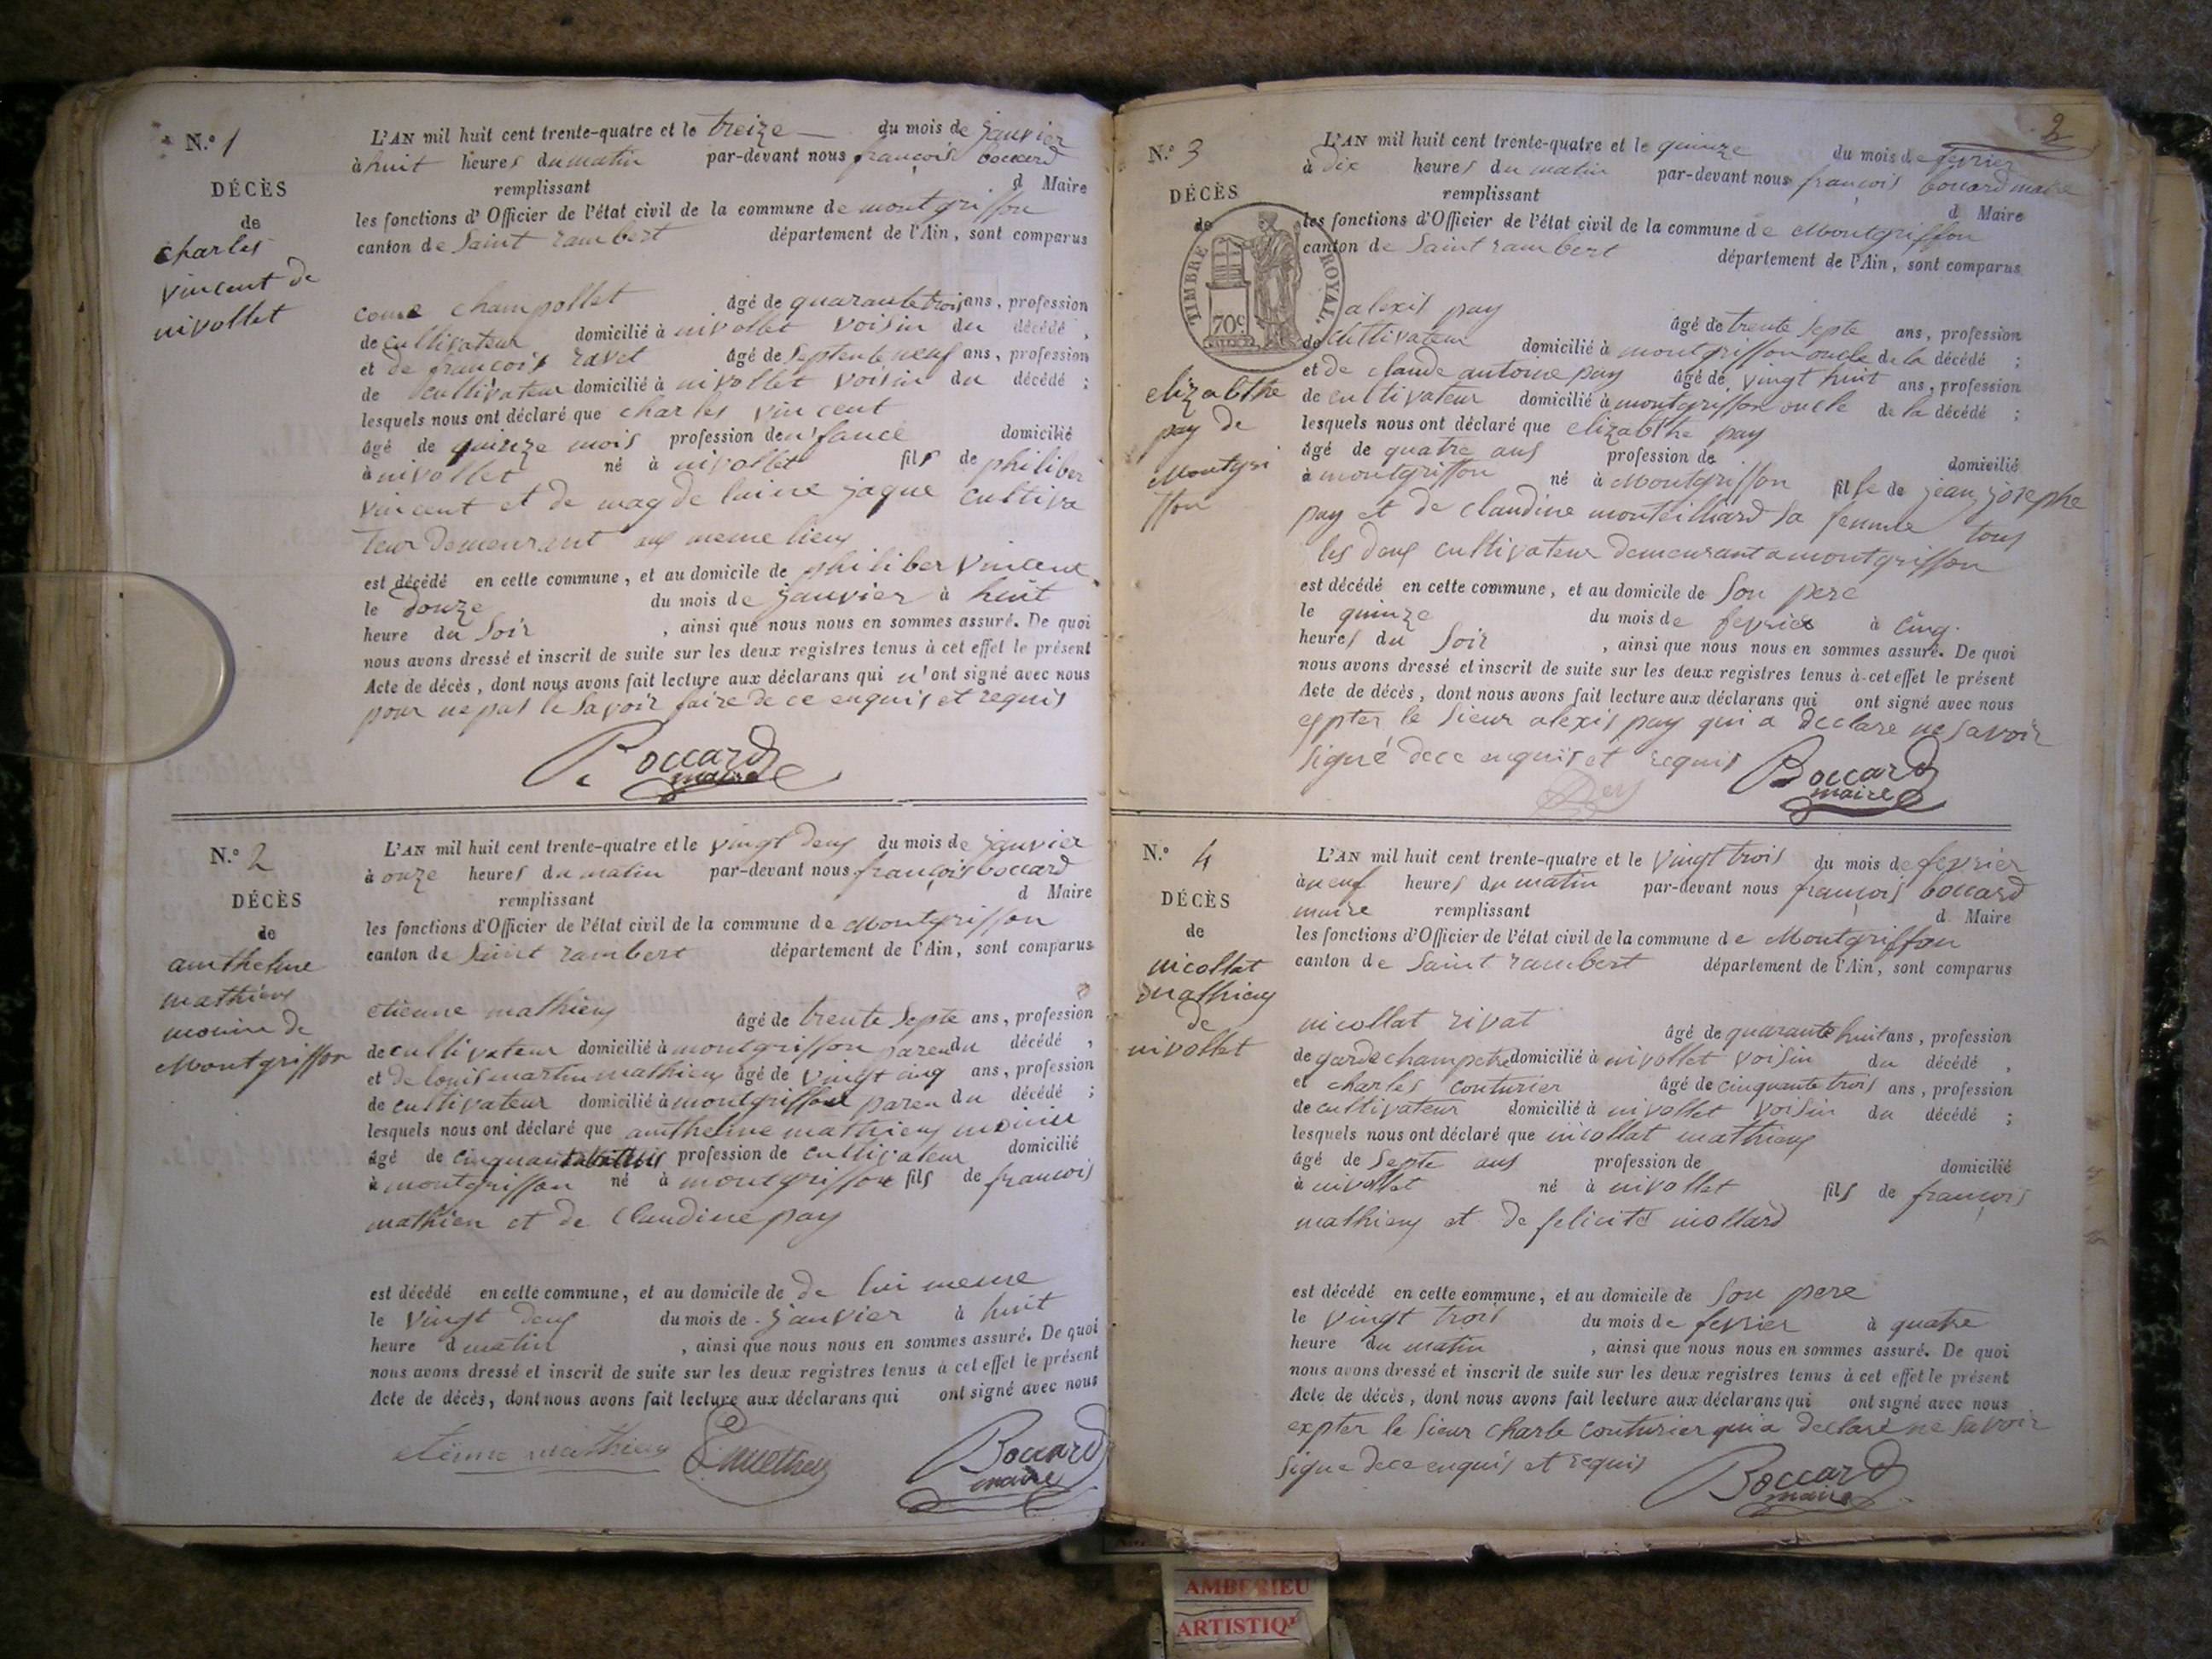 N.º 1
DÉCÈS
de
charles
vincent de
nivollet
L'AN mil huit cent trente-quatre et le treize du mois de janvier
à huit heures du matin par-devant nous françois boccard
remplissant d Maire
les fonctions d'Officier de l'état civil de la commune de montgriffon
canton de Saint rambert département de l'Ain, sont comparus
come champollet âgé de quarante trois ans, profession
de cultivateur domicilié à nivollet voisin du décédé,
et de françois ravet âgé de septente neuf ans, profession
de cultivateur domicilié à nivollet voisin du décédé;
lesquels nous ont déclaré que charles vincent
âgé de quinze mois profession denfance domicilié
à nivollet né à nivollet fils de philiber
vincent et de magdelaine jaque cultiva
teur demeurant aux meme lieux
est décédé en cette commune, et au domicile de philiber vincent
le douze du mois de janvier à huit
heure du soir, ainsi que nous nous en sommes assuré. De quoi
nous avons dressé et inscrit de suite sur les deux registres tenus à cet effet le présent
Acte de décès, dont nous avons fait lecture aux déclarans qui n'ont signé avec nous
pour ne pas le savoir faire de ce enquis et requis
Boccard
maire
N.º 2
DÉCÈS
de
anthelme
mathieux
monin de
Montgriffon
L'AN mil huit cent trente-quatre et le vingt deux du mois de janvier
à onze heures du matin par-devant nous françois boccard
remplissant d Maire
les fonctions d'Officier de l'état civil de la commune de Montgriffon
canton de Saint rambert département de l'Ain, sont comparus
etienne mathieux âgé de trente septe ans, profession
de cultivateur domicilié à montgriffon paren du décédé,
et de louis martin mathieux âgé de vingt cinq ans, profession
de cultivateur domicilié à montgriffon paren du décédé;
lesquels nous ont déclaré que anthelme mathieux monin
âgé de profession de cultivateur domicilié
à montgriffon né à montgriffon fils de francois
mathieu et de Claudine pay
est décédé en cette commune, et au domicile de de lui meme
le vingt deux du mois de janvier à huit
heure d matin, ainsi que nous nous en sommes assuré. De quoi
nous avons dressé et inscrit de suite sur les deux registres tenus à cet effet le présent
Acte de décès, dont nous avons fait lecture aux déclarans qui ont signé avec nous
etienne mathieux Boccard
maire
2
N.º 3
DÉCÈS
de
TIMBRE ROYAL.
70c
elizabthe
pay de
Montgri
ffon
L'AN mil huit cent trente-quatre et le quinze du mois de fevrier
à dix heures du matin par-devant nous françois boccard maire
remplissant d Maire
les fonctions d'Officier de l'état civil de la commune de Montgriffon
canton de Saint rambert département de l'Ain, sont comparus
alexis pay âgé de trente septe ans, profession
de Cultivateur domicilié à montgriffon oncle de la décédé;
et de claude antoine pay âgé de vingt huit ans, profession
de cultivateur domicilié à montgriffon oncle de la décédé;
lesquels nous ont déclaré que elizabthe pay
âgé de quatre ans profession de domicilié
à montgriffon né à Montgriffon fille de jean josephe
pay et de claudine monteilliard sa femme tous
les deux cultivateur demeurant a montgriffon
est décédé en cette commune, et au domicile de son pere
le quinze du mois de fevrier à cinq
heures du soir, ainsi que nous nous en sommes assuré. De quoi
nous avons dressé et inscrit de suite sur les deux registres tenus à cet effet le présent
Acte de décès, dont nous avons fait lecture aux déclarans qui ont signé avec nous
expter le sieur alexis pay qui a declare ne savoir
signé de ce enquis et requis Boccard
maire
N.º 4
DÉCÈS
de
nicollat
mathieux
de
nivollet
L'AN mil huit cent trente-quatre et le vingt trois du mois de fevrier
à neuf heures du matin par-devant nous françois boccard
maire remplissant d Maire
les fonctions d'Officier de l'état civil de la commune de Montgriffon
canton de Saint rambert département de l'Ain, sont comparus
nicollat rivat âgé de quarante huit ans, profession
de garde champetre domicilié à nivollet voisin du décédé,
et charles couturier âgé de cinquante trois ans, profession
de cultivateur domicilié à nivollet voisin du décédé;
lesquels nous ont déclaré que nicollat mathieux
âgé de septe ans profession de domicilié
à nivollet né à nivollet fils de françois
mathieux et de felicité mollard
est décédé en cette commune, et au domicile de son pere
le vingt trois du mois de fevrier à quatre
heure du matin, ainsi que nous nous en sommes assuré. De quoi
nous avons dressé et inscrit de suite sur les deux registres tenus à cet effet le présent
Acte de décès, dont nous avons fait lecture aux déclarans qui ont signé avec nous
expter le sieur charle couturier qui a declaré ne savoir
signe de ce enquis et requis
Boccard
maire
AMBERIEU
ARTISTIQU